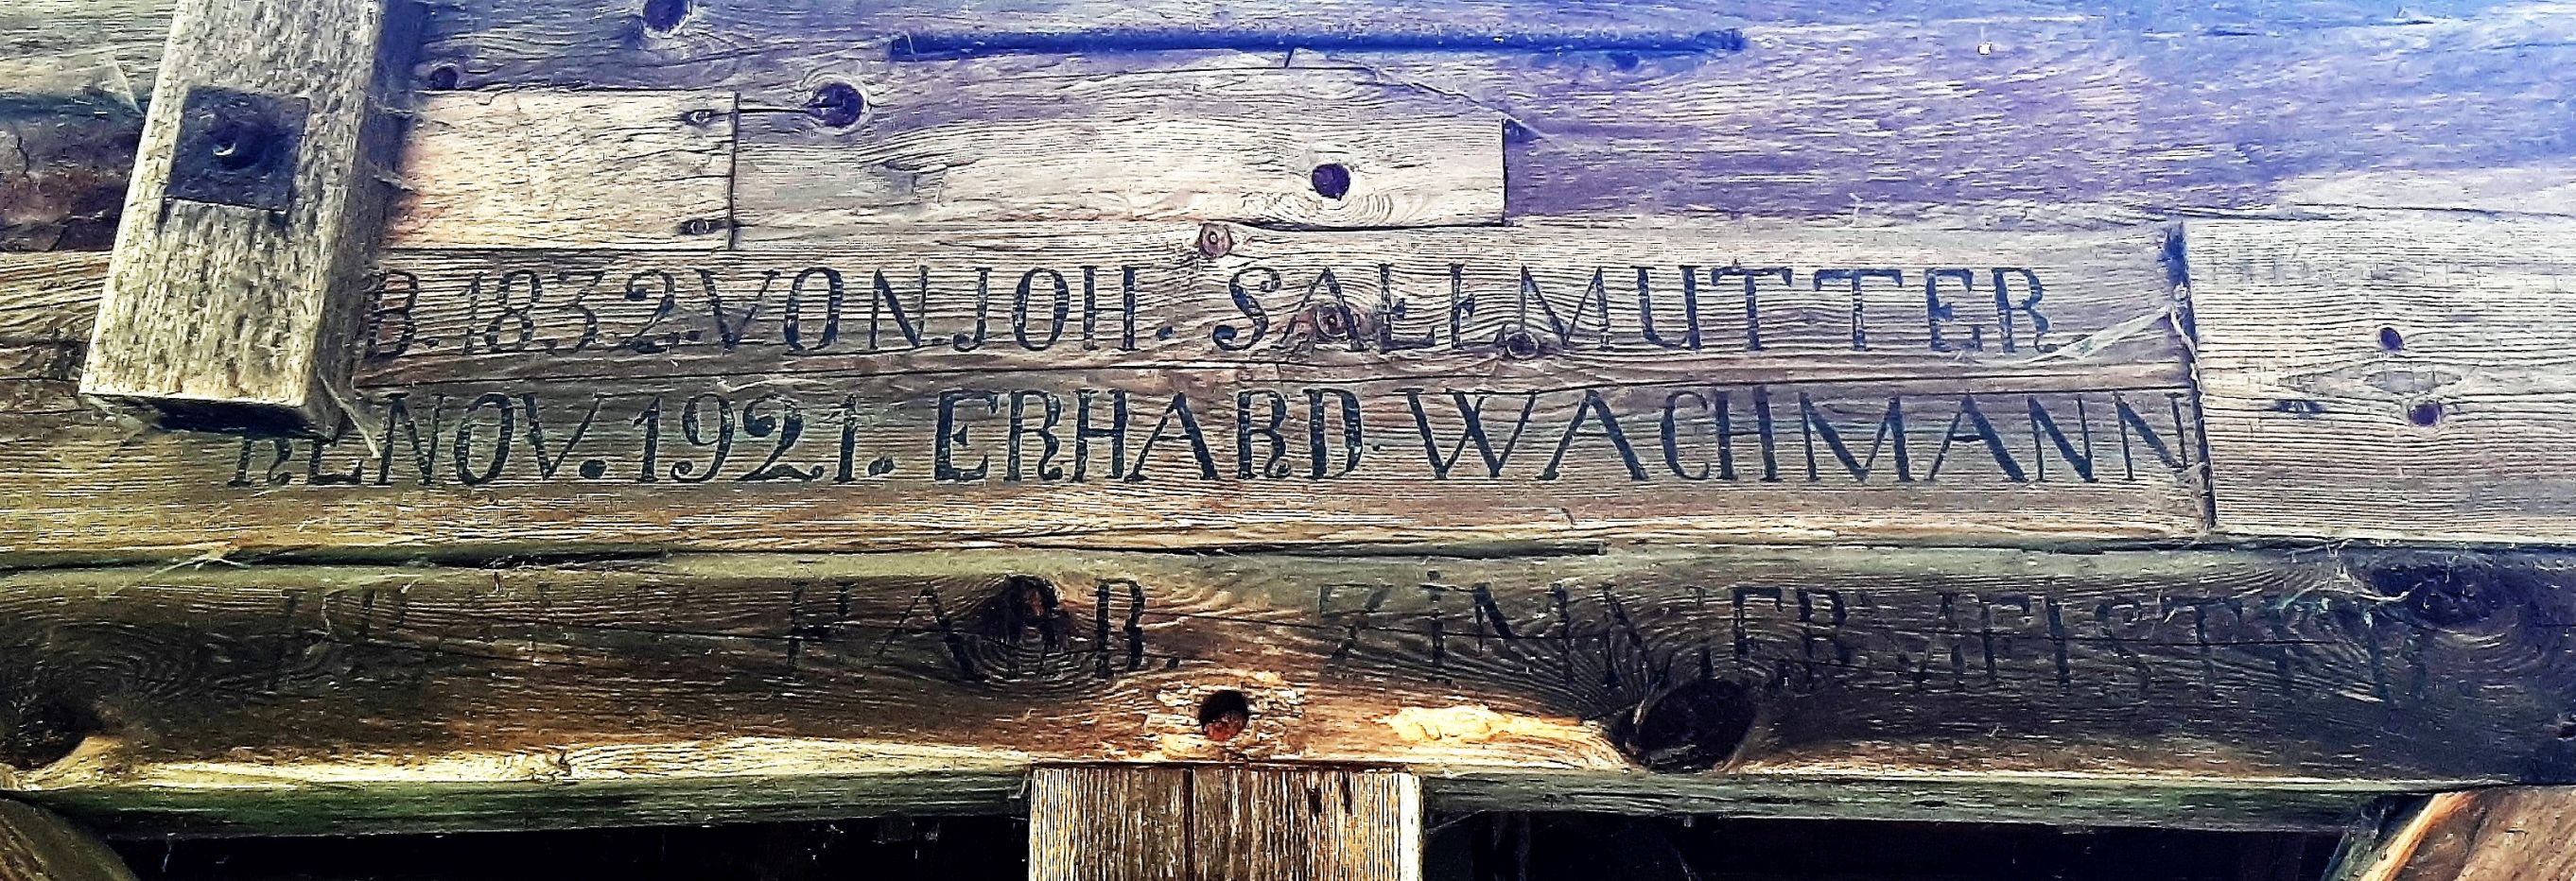 B. 1832. VON JOH. SALLMUTTER
RENOV. 1921. ERHARD WACHMANN
ZIMMERMEISTER